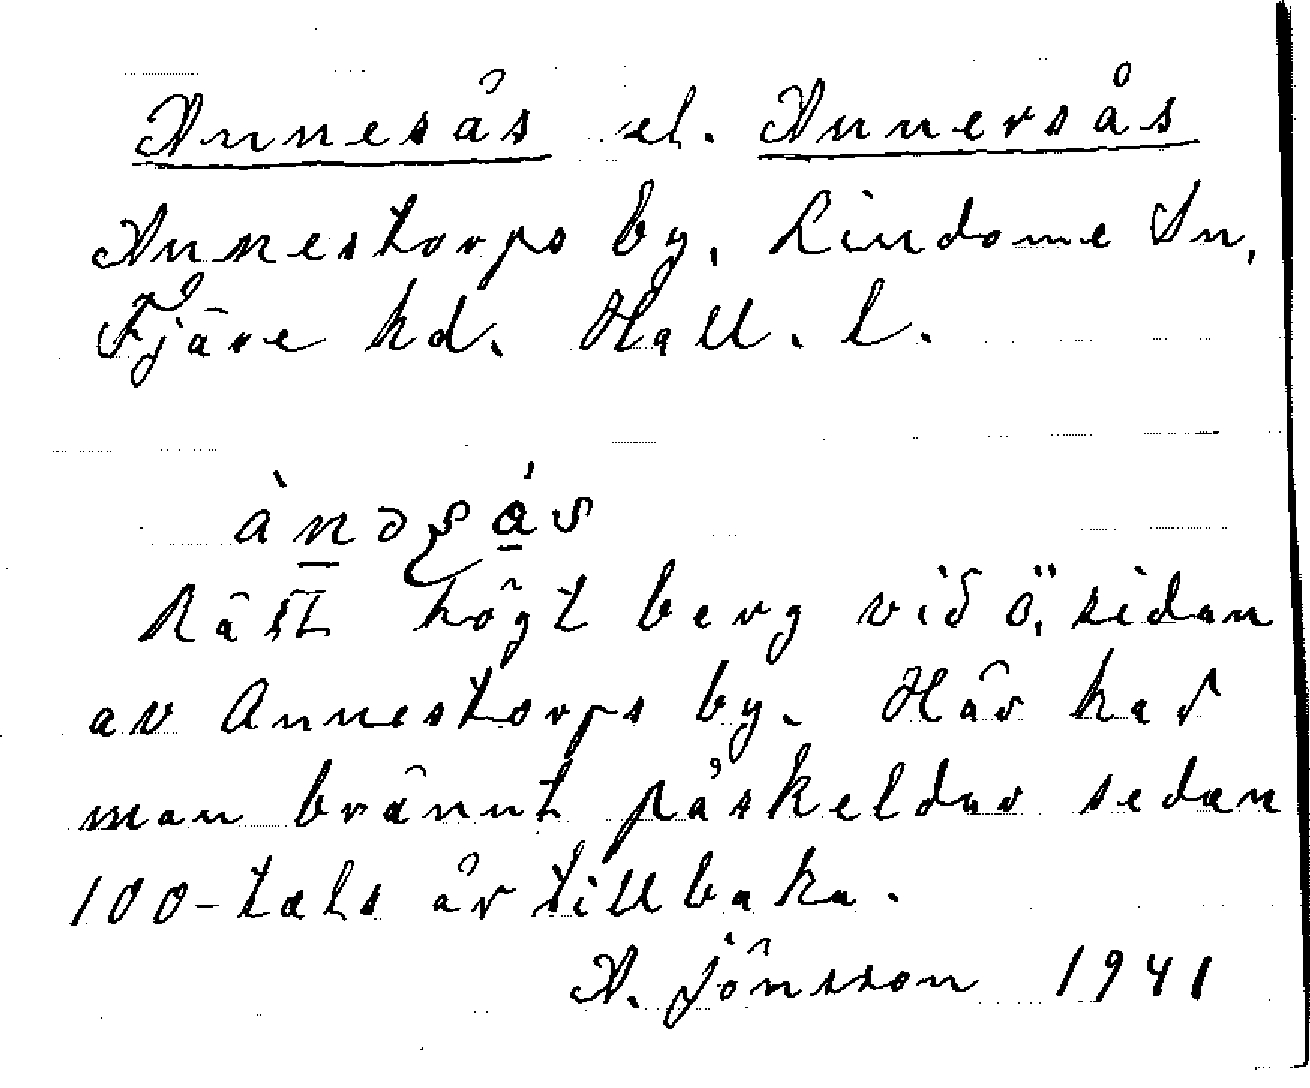 Annesås el. Annersås
Annestorps by, Lindome Sn,
Fjäre hd. Hall. l.
Rätt högt berg vid ö. sidan
av Annestorps by. Här har
man brännt påskeldar sedan
100-tals år tillbaka.
A. Jönsson 1941